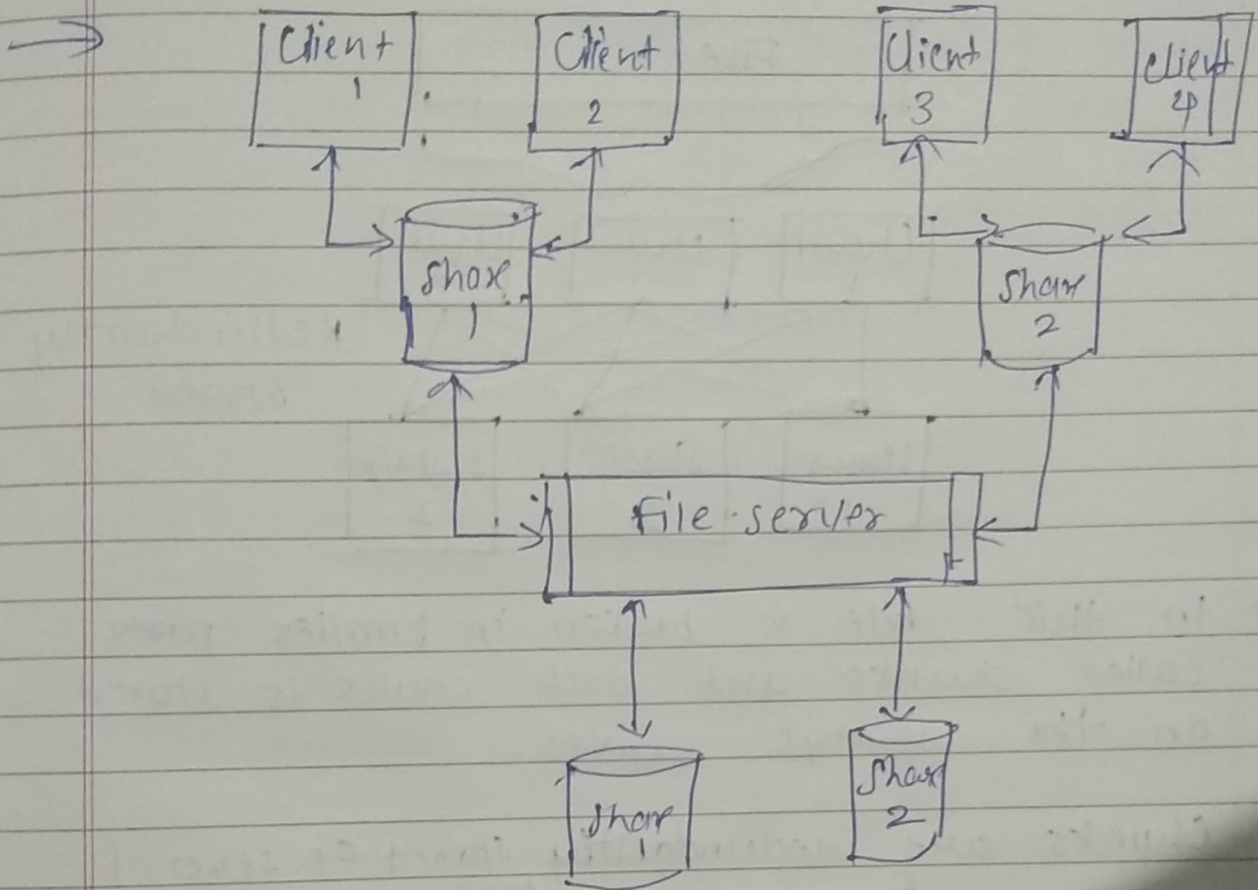 Client
1
Client
2
Client
3
Client
4
Share
1
Share
2
File server
Share
1
Share
2